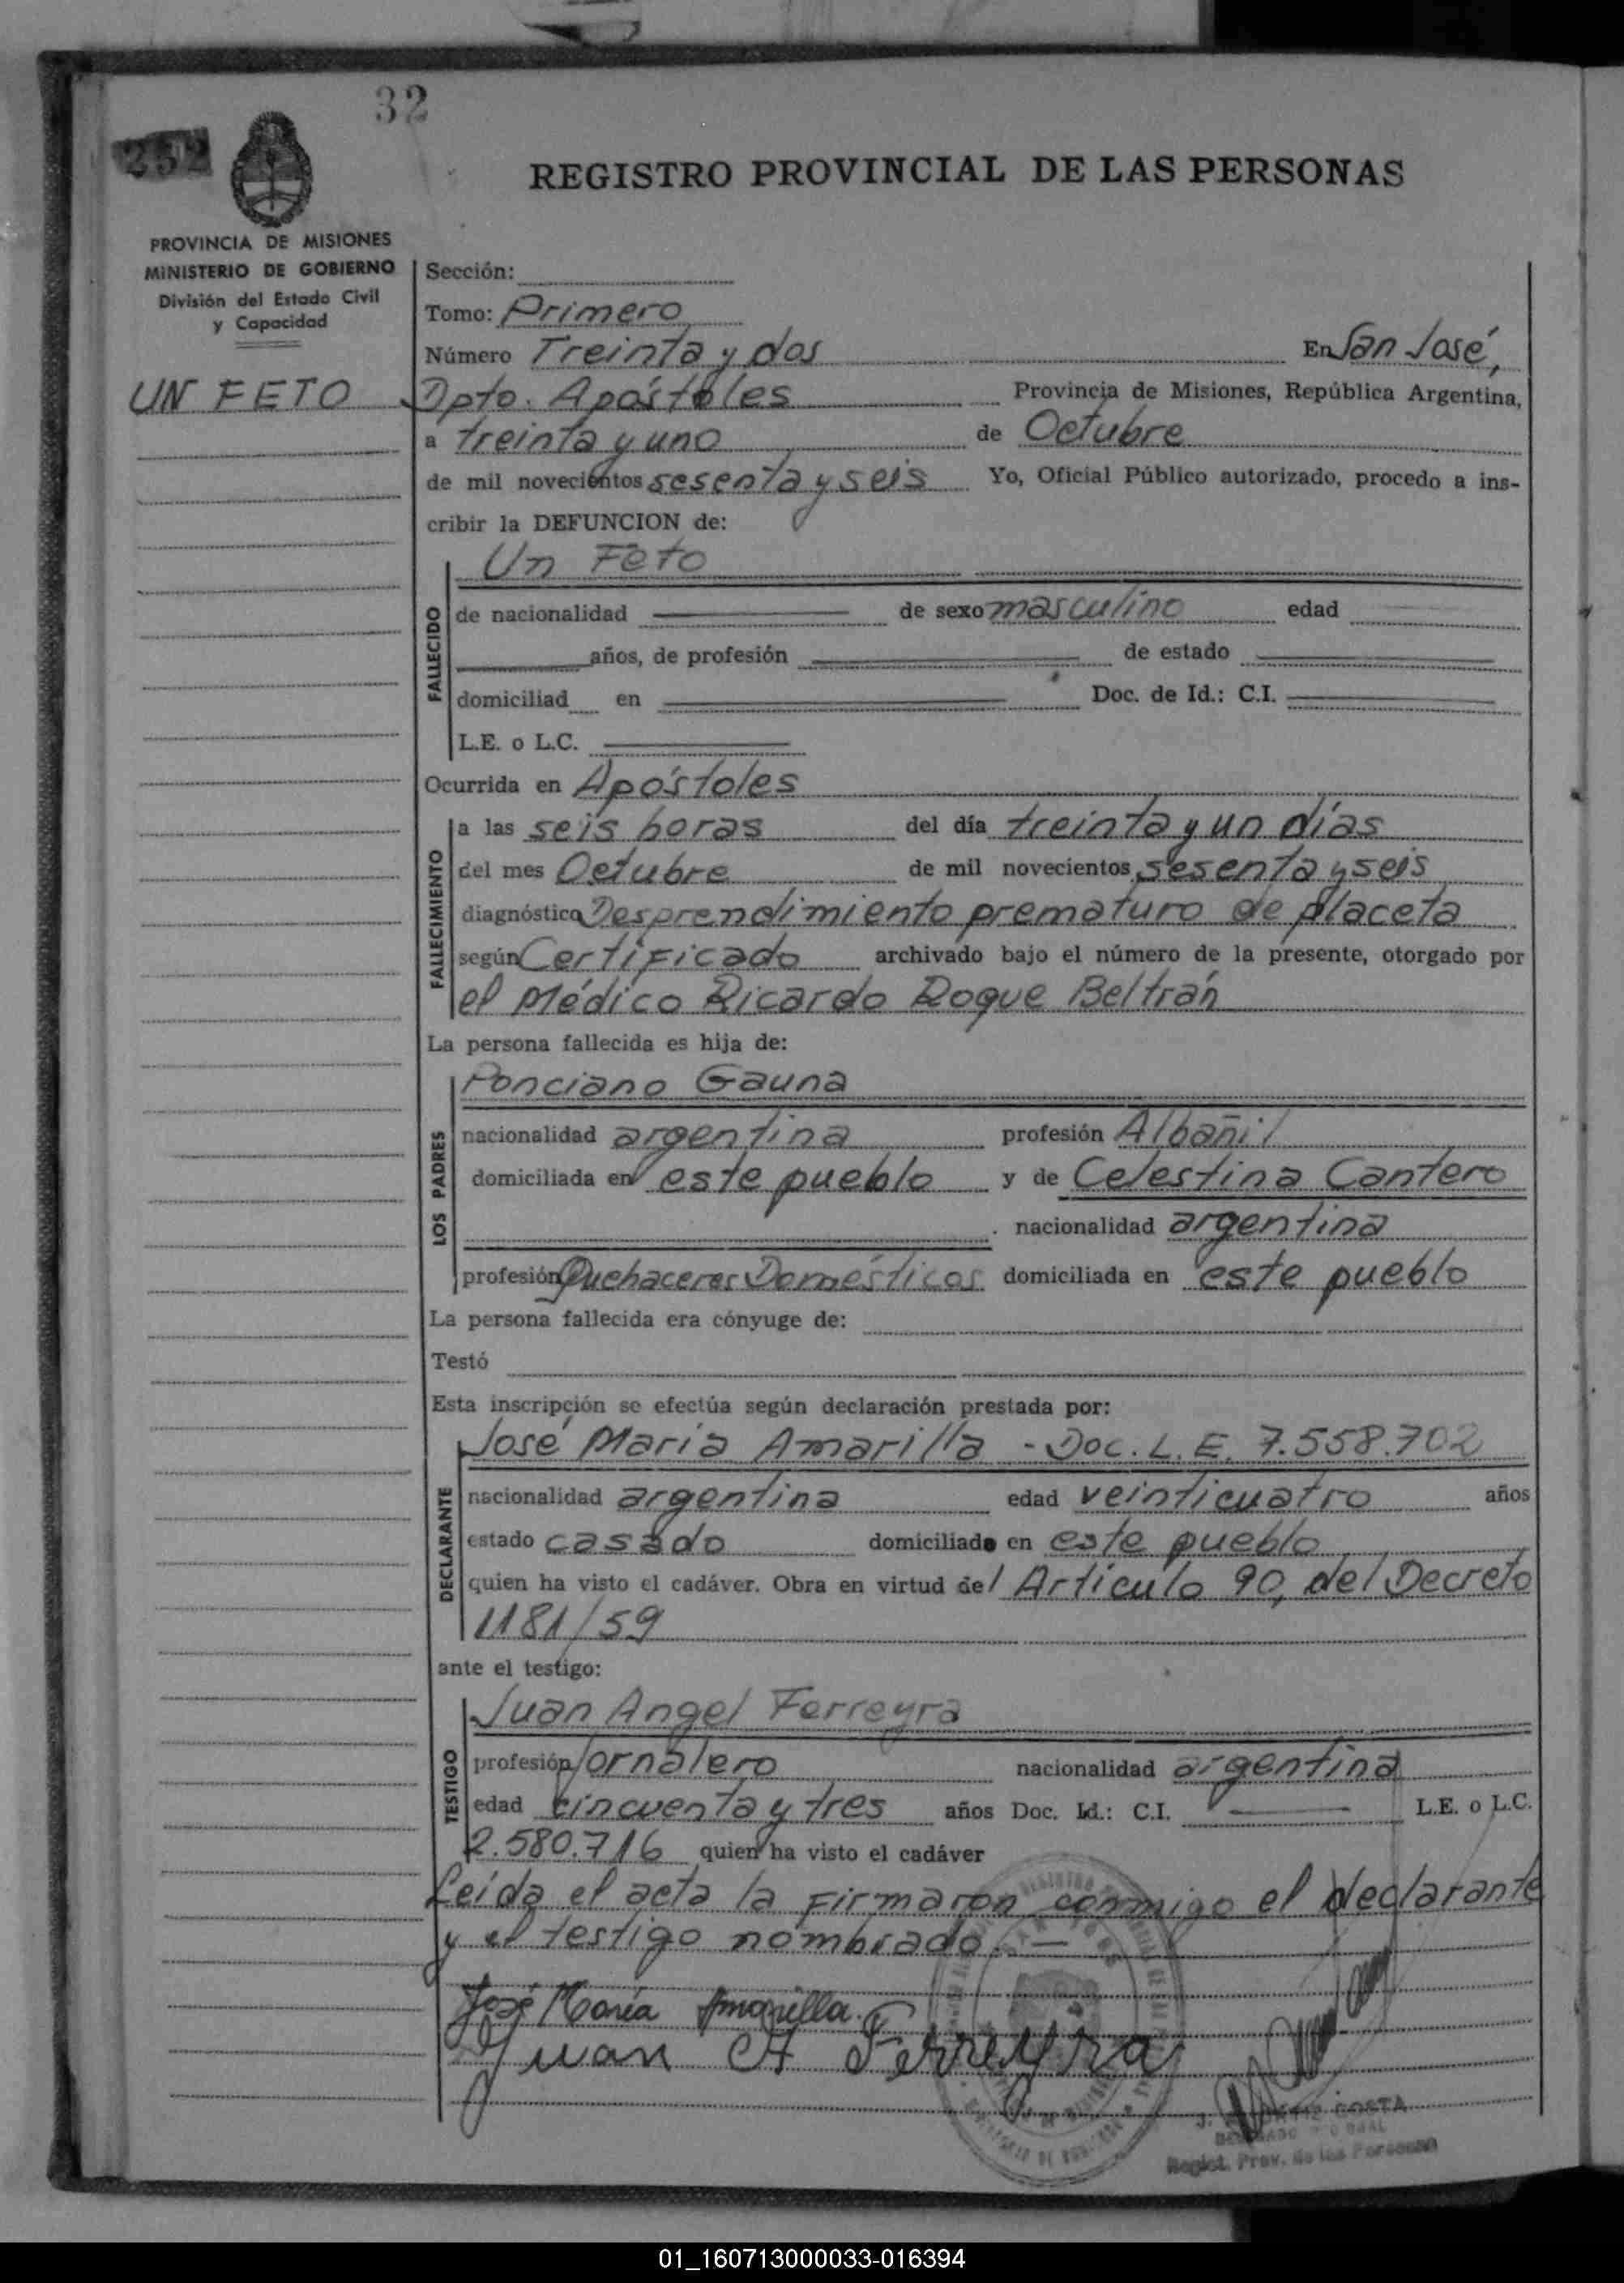 32
252
REGISTRO PROVINCIAL DE LAS PERSONAS
PROVINCIA DE MISIONES
MINISTERIO DE GOBIERNO
División del Estado Civil
y Capacidad
UN FETO
Sección:
Tomo: Primero
Número Treinta y dos En San José,
Dpto. Apóstoles Provincia de Misiones, República Argentina,
a treinta y uno de Octubre
de mil novecientos sesenta y seis Yo, Oficial Público autorizado, procedo a ins-
cribir la DEFUNCION de:
FALLECIDO
Un Feto
de nacionalidad de sexo masculino edad
años, de profesión de estado
domiciliad en Doc. de Id.: C.I.
L.E. o L.C.
Ocurrida en Apóstoles
FALLECIMIENTO
a las seis horas del día treinta y un días
del mes Octubre de mil novecientos sesenta y seis
diagnóstico Desprendimiento prematuro de placeta
según Certificado archivado bajo el número de la presente, otorgado por
el Médico Ricardo Roque Beltrán
La persona fallecida es hija de:
LOS PADRES
Ponciano Gauna
nacionalidad argentina profesión Albañil
domiciliada en este pueblo y de Celestina Cantero
. nacionalidad argentina
profesión Quehaceres Domésticos domiciliada en este pueblo
La persona fallecida era cónyuge de:
Testó
Esta inscripción se efectúa según declaración prestada por:
DECLARANTE
José María Amarilla - Doc. L. E. 7.558.702
nacionalidad argentina edad veinticuatro años
estado casado domiciliado en este pueblo
quien ha visto el cadáver. Obra en virtud del Artículo 90, del Decreto
1181/59
ante el testigo:
TESTIGO
Juan Angel Ferreyra
profesión Jornalero nacionalidad argentina
edad cincuenta y tres años Doc. Id.: C.I. L.E. o L.C.
2.580.716 quien ha visto el cadáver
Leída el acta la firmaron conmigo el declarante
y el testigo nombrado. —
José María Amarilla.
Juan A Ferreyra
COSTA
Regist. Prov. de las Personas
01_160713000033-016394